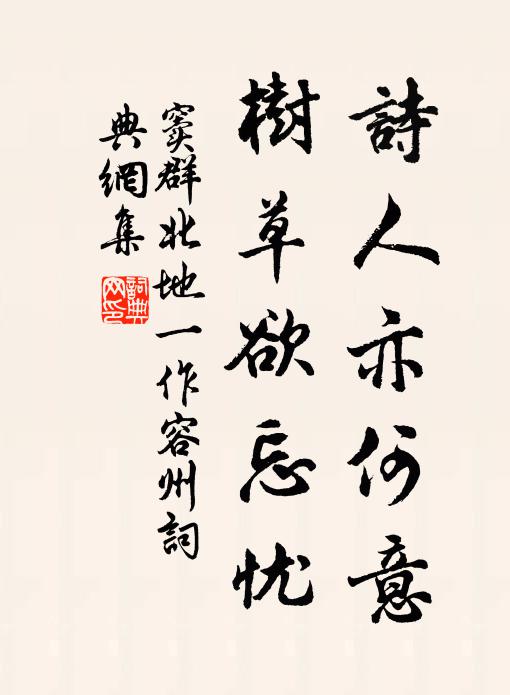 詩人亦何意
樹草欲忘忧
窦群北地一作容州詞
典網集
詞典
网印